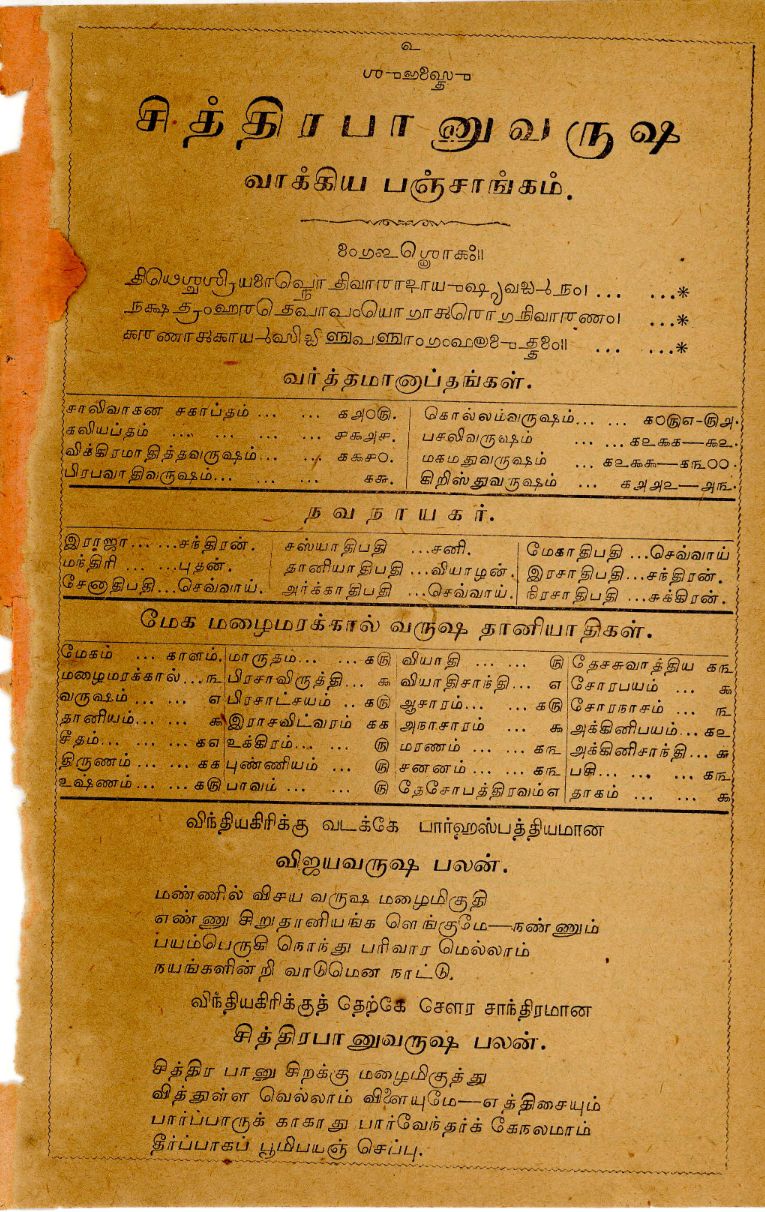 உ
சித்திரபானுவருஷ
வாக்கிய பஞ்சாங்கம்.
வர்த்தமானாப்தங்கள்.
சாலிவாகன சகாப்தம் ... ... ௧௮௦௫. கொல்லம்வருஷம்... ... ௧௦௫௭-௫௮.
கலியப்தம் ... ... ... ... ௪௯௮௪. பசலிவருஷம் ... ... ௧௨௯௧—௯௨.
விக்கிரமாதித்தவருஷம்... ... ௧௯௪௦. மகமதுவருஷம் ... ௧௨௯௯—௧௩௦௦.
பிரபவாதிவருஷம்... ... ... ௧௬. கிறிஸ்துவருஷம் ... ௧௮௮௨—௮௩.
நவநாயகர்.
இராஜா... ...சந்திரன். சஸ்யாதிபதி ...சனி. மேகாதிபதி ...செவ்வாய்
மந்திரி ... ...புதன். தானியாதிபதி ...வியாழன். இரசாதிபதி...சந்திரன்.
சேனாதிபதி...செவ்வாய். அர்க்காதிபதி ...செவ்வாய். நிரசாதிபதி ...சுக்கிரன்.
மேக மழைமரக்கால் வருஷ தானியாதிகள்.
மேகம் ... காளம். மாருதம... ... ௧௫ வியாதி ... ... ௫ தேசசுவாத்திய ௧௩
மழைமரக்கால்...௩ பிரசாவிருத்தி... ௯ வியாதிசாந்தி... ௭ சோரபயம் ... ௯
வருஷம் ... ... ௭ பிரசாட்சயம் .. ௧௫ ஆசாரம்... ... ௧௫ சோரநாசம் ... ௩
தானியம்... ... ௯ இராசவிட்வரம் ௧௧ அநாசாரம் ... ௯ அக்கினிபயம்...௧௨
சீதம்... ... ... ௧௭ உக்கிரம்... ... ௫ மரணம் ... ... ௧௩ அக்கினிசாந்தி... ௬
திருணம் ... ... ௧௧ புண்ணியம் ... ௫ சனனம் ... ... ௧௩ பசி... ... ... ௧௩
உஷ்ணம் ... ... ௧௫ பாவம் ... ... ௫ தேசோபத்திரவம் ௭ தாகம் ... ... ௯
விந்தியகிரிக்கு வடக்கே பார்ஹஸ்பத்தியமான
விஜயவருஷ பலன்.
மண்ணில் விசய வருஷ மழைமிகுதி
எண்ணு சிறுதானியங்க ளெங்குமே—நண்ணும்
பயம்பெருகி நொந்து பரிவார மெல்லாம்
நயங்களின்றி வாடுமென நாட்டு.
விந்தியகிரிக்குத் தெற்கே சௌர சாந்திரமான
சித்திரபானுவருஷ பலன்.
சித்திர பானு சிறக்கு மழைமிகுத்து
வித்துள்ள வெல்லாம் விளையுமே—எத்திசையும்
பார்ப்பாருக் காகாது பார்வேந்தர்க் கேநலமாம்
தீர்ப்பாகப் பூமிபயஞ் செப்பு.